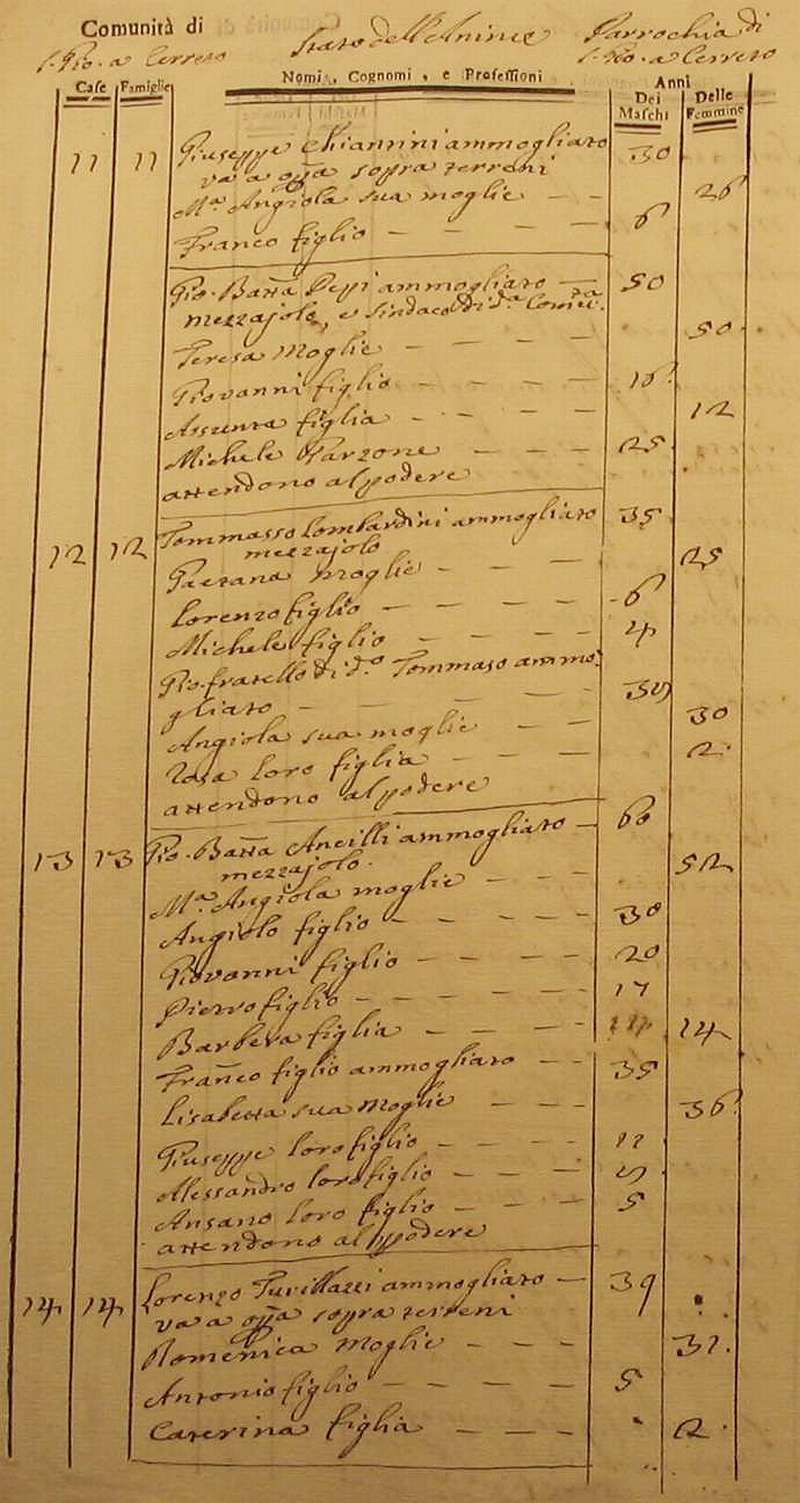 Comunità di Stato dell'Anime Parrochia di
S. Gio. a Cerreto S. Gio. a Cerreto
Case Famiglie Nomi, Cognomi, e Professioni Anni
Dei Maschi Delle Femmine
11 11 Giuseppe Chiannini ammogliato 30
va a opra sopra terreni
Ma. Angiola sua moglie — — 26
Franco figlio — — — — 6
Gio. Batta ammogliato — 50
mezzajolo, e Sindaco di da. Comtà.
Teresa Moglie — — — 50
Giovanni figlio — — — 16
Assunta figlia — — — 12
Michele Garzone — — — 25
attendono al podere
12 12 Tommasso Lombardini ammogliato 35
mezzajolo
Gaetana moglie — — — 25
Lorenzo figlio — — — — 6
Michele figlio — — — 4
Gio. fratello di do. Tommaso ammo
gliato — — — —
Angiola sua moglie — — 30
Rosa loro figlia — — — 2
attendono al podere
13 13 Gio. Batta Ancilli ammogliato — 60
mezzajolo
Ma. Angiola moglie — — 52
Angiolo figlio — — — — 30
Giovanni figlio — — — — 20
Pietro figlio — — — — 17
Barbera figlia — — — — 14
Franco figlio ammogliato — — 35
Lisabetta sua Moglie — — — 36
Giuseppe loro figlio — — — — 11
Alessandro loro figlio — — —
Ansano loro figlio — — — 5
attendono al podere
14 14 Lorenzo ammogliato — 39
va a opra sopra terreni
Domenica Moglie — — — 31
Antonio figlio — — — — 5
Caterina figlia — — — 2